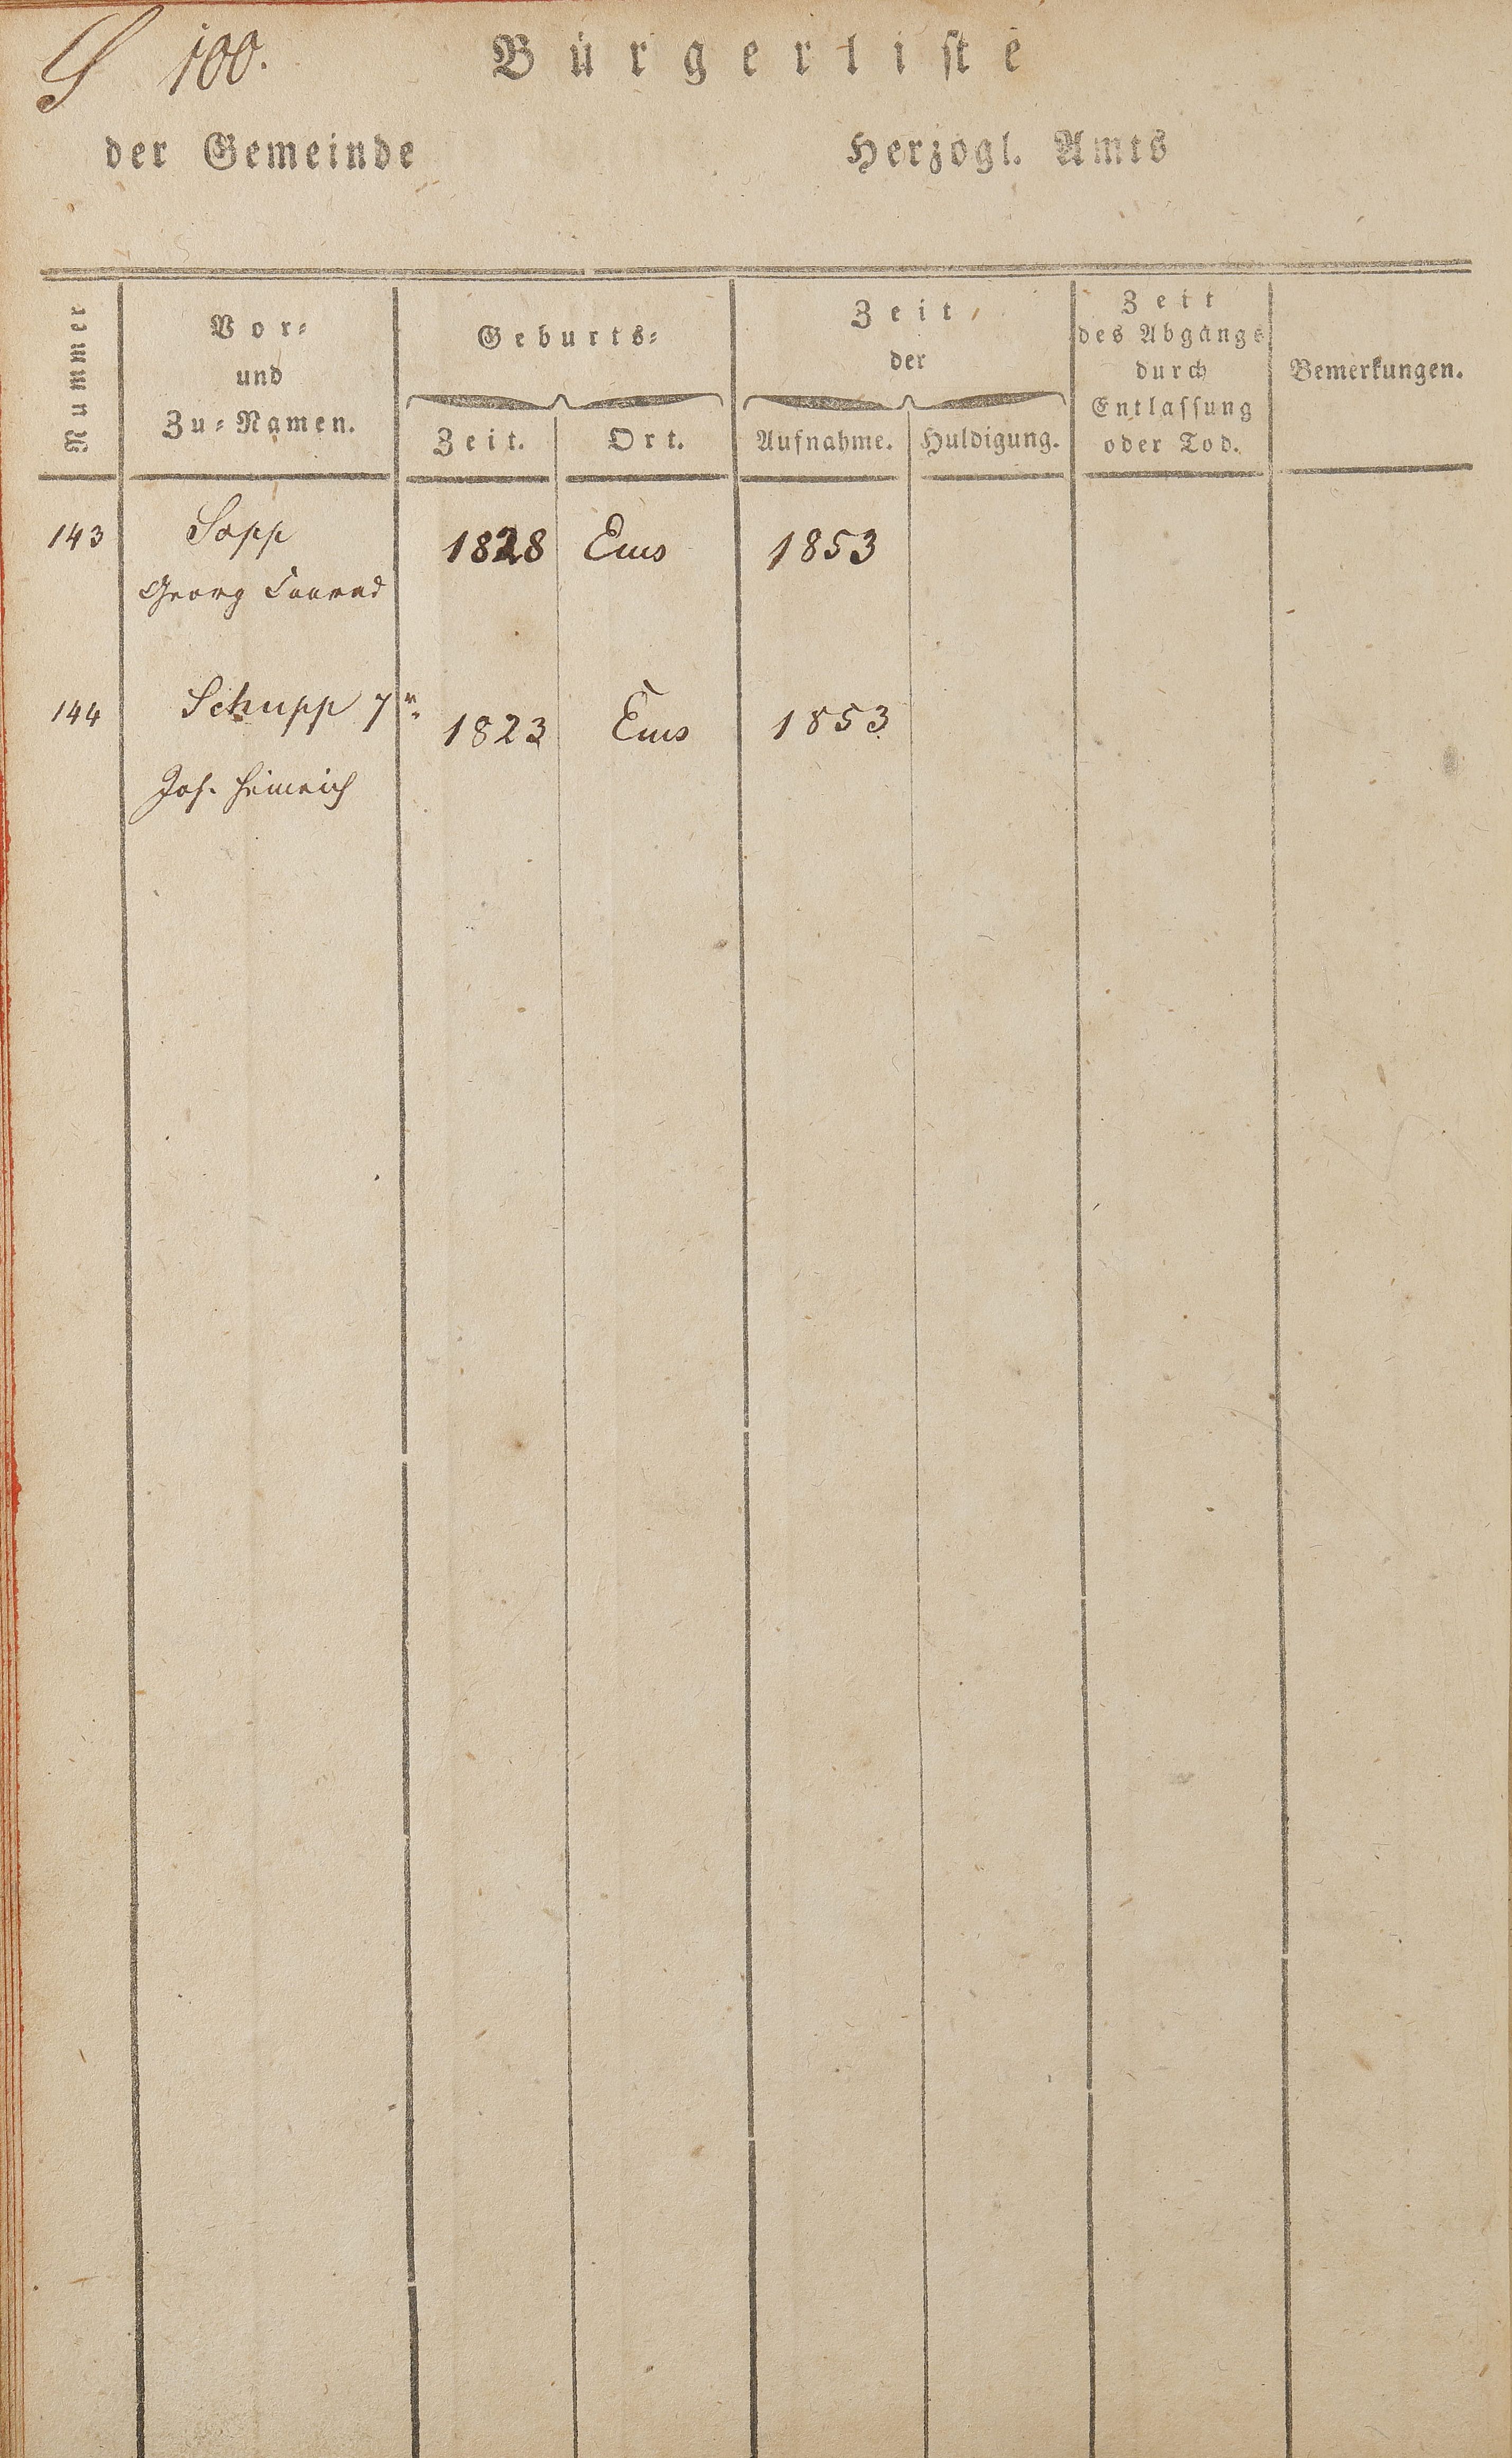 S 100.
Bürgerliste
der Gemeinde Herzogl. Amts
Nummer
Vor-
und
Zu-Namen.
Geburts-
Zeit. Ort.
Zeit
der
Aufnahme. Huldigung.
Zeit
des Abgangs
durch
Entlassung
oder Tod.
Bemerkungen.
143 Sopp 1828 Ems 1853
Georg Conrad
144 Schupp 7r. 1823 Ems 1853
Joh. Heinrich